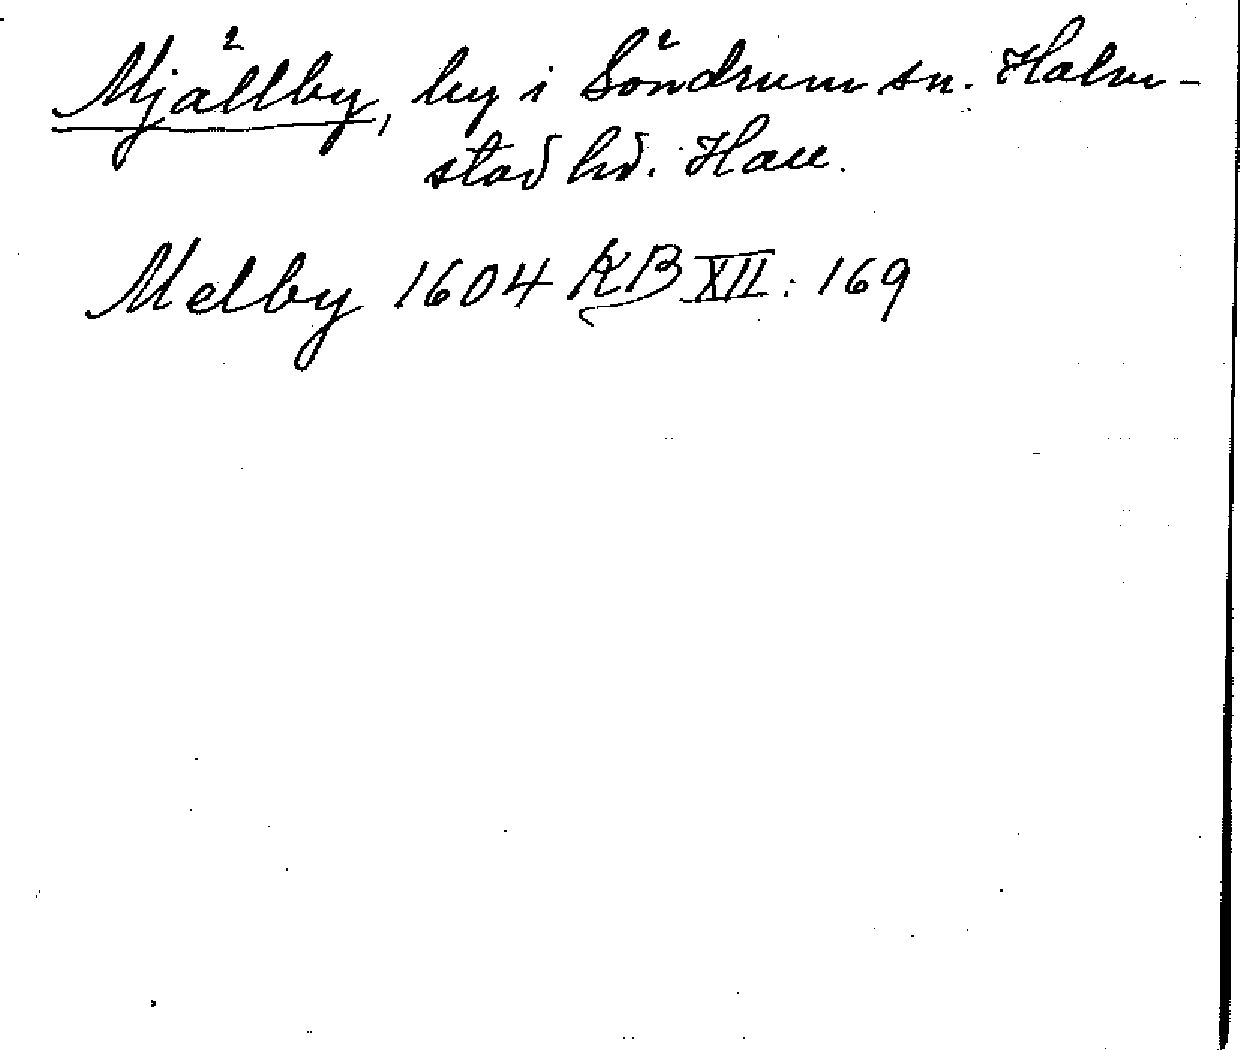 Mjällby, by i Söndrum sn. Halm-
stad hd. Hall.
Melby 1604 KB XII: 169